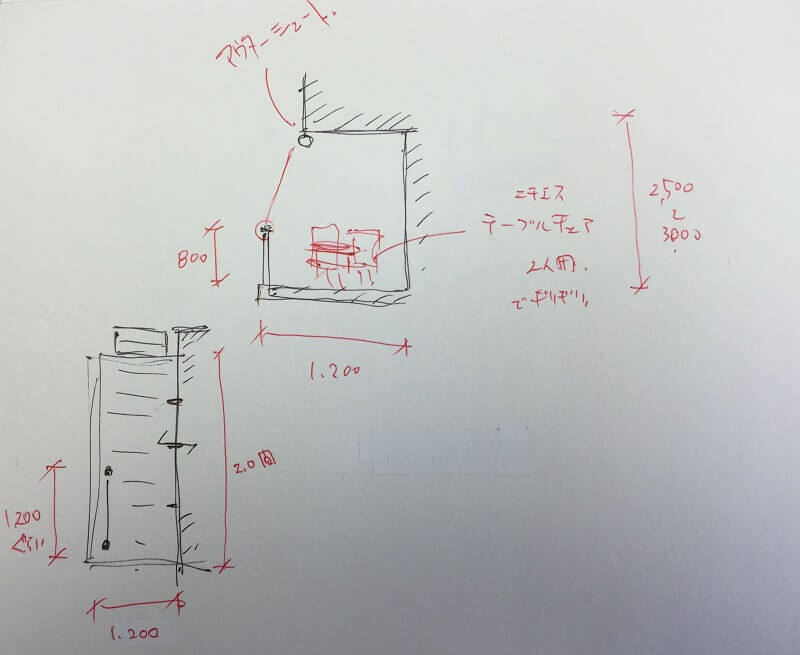 アウターシェード
ニチエス
テーブルチェア
2人用
でギリギリ
2,500
〜
3,000
800
1.200
2.0間
1200
ぐらい
1.200